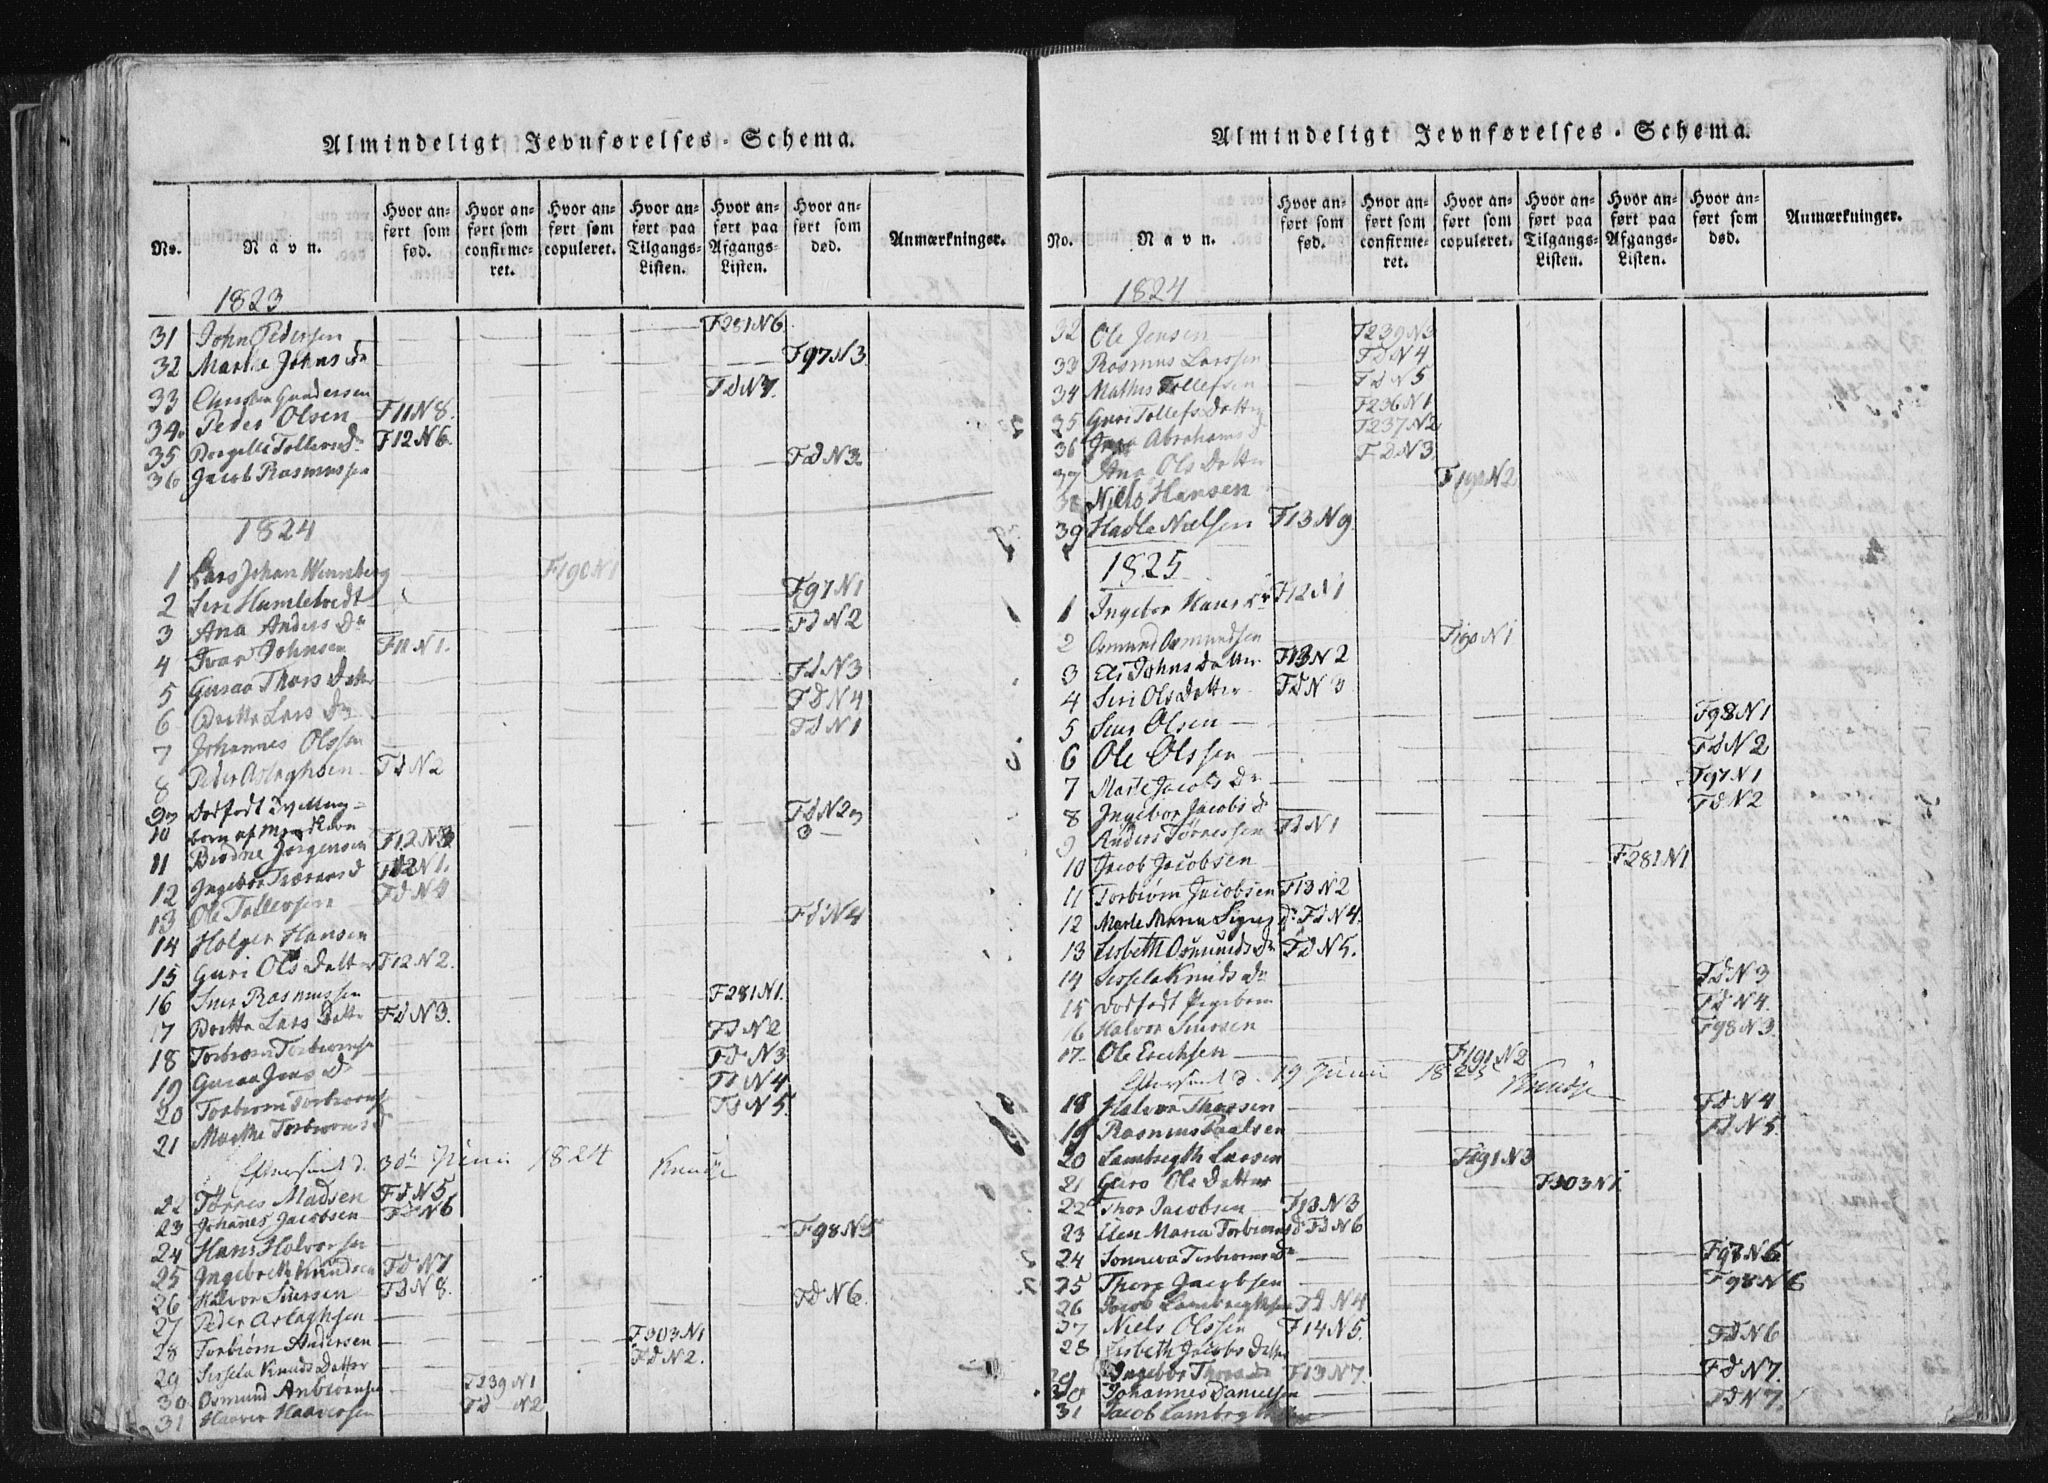 Almindeligt Jevnførelses-Schema.
No.
Navn.
Hvor anført som fød.
Hvor anført som confirmeret.
Hvor anført som copuleret.
Hvor anført paa Tilgangs-Listen.
Hvor anført paa Afgangs-Listen.
Hvor anført som død.
Anmærkninger.
1823
31 John Pedersen F281N6
32 Marthe Johns Dr F97N3
33 Christen Gundersen FdN7
34 Peder Olsen F11N8
35 Borgille Tollevs Dr F12N6
36 Jacob Rasmussen FdN3
1824
1 Lars Johan Wennberg F190N1
2 Siri Humletvedt F97N1
3 Ana Anders Dr FdN2
4 Ivar Johnsen F11N1
5 Guraa Thors Datter FdN3
6 Britta Lars Dr FDN4
7 Johannes Olssen FDN1
8 Peder Aslaghsen FdN2
9 Dødfødt Tvilling- FdN2
10 børn af Mandkiøn 3
11 Brødne Jørgensen F12N3
12 Ingebor Tværans d F12N1
13 Ole Tollevsen FdN4
14 Holger Hansen FdN4
15 Guri Ols Datter F12N2
16 Siur Rasmussen F281N1
17 Britta Lars Datter FdN3
18 Torbiørn Torbiørnsen FdN2
19 Guraa Jons Dr FdN3
20 Torbiørn Torbiørnsen FdN4
21 Marthe Torbiørns d FdN5
Efterseet d. 3de Junii 1824
22 Tørres Madsen FdN5
23 Johanes Jacobsen FdN6
24 Hans Halvorsen F98N5
25 Ingebreth Knudsen FdN7
26 Halvor Siursen FdN8
27 Peder Aslaghsen FdN6
28 Torbiørn Andersen F303N1
29 Sissela Knuds Datter FdN2
30 Osmund Anbiørnsen F239N1
31 Haaver Haaversen Fd N2
Almindeligt Jevnførelses-Schema.
No.
Navn.
Hvor anført som fød.
Hvor anført som confirmeret.
Hvor anført som copuleret.
Hvor anført paa Tilgangs-Listen.
Hvor anført paa Afgangs-Listen.
Hvor anført som død.
Anmærkninger.
1824
32 Ole Jensen F239N3
33 Rasmus Larssen FdN4
34 Mathis Tollefsen FdN5
35 Guri Tollefs Datter F236N1
36 Abrahams d F237N2
37 Ana Ols Datter FdN3
38 Niels Hansen F190N2
39 Hadle Nielsen F13N9
1825
1 Ingebor Hans Dr F12N1
2 Osmund Osmundsen F190N1
3 Eli Johns Datter F13N2
4 Siri Ols Datter FdN3
5 Siur Olsen F98N1
6 Ole Olssen FdN2
7 Marte Jacobs Dr F97N1
8 Ingebor Jacobs d FdN2
9 Anders Tørressen FdN1
10 Jacob Jacobsen F281N1
11 Torbiørn Jacobsen F13N2
12 Marte Maria Sigus d FdN4
13 Lisbeth Osmunds Dr FdN5
14 Sissela Knuds dr FdN3
15 Dødfødt Pigebarn FdN4
16 Halvor Siursen F98N3
17 Ole Erichsen F191N2
Efterseet d. 19 Junii 1825
18 Halvor Thorsen FdN4
19 Rasmus Paalsen FdN5
20 Lambregth Larsen F191N3
21 Guro Ole Datter F303N1
22 Thor Jacobsen F13N3
23 Elen Maria Torbiørns d FdN6
24 Sonneva Torbiørns Dr F97N5
25 Thore Jacobsen F98N6
26 Jacob Lambregthsen FdN4
27 Niels Olssen F14N5
28 Lisbeth Jacobs Datter FdN6
29 Ingebor Thors Dr F13N7 FdN7
30 Johannes Danielsen FdN7
31 Jacob Lambregthsen